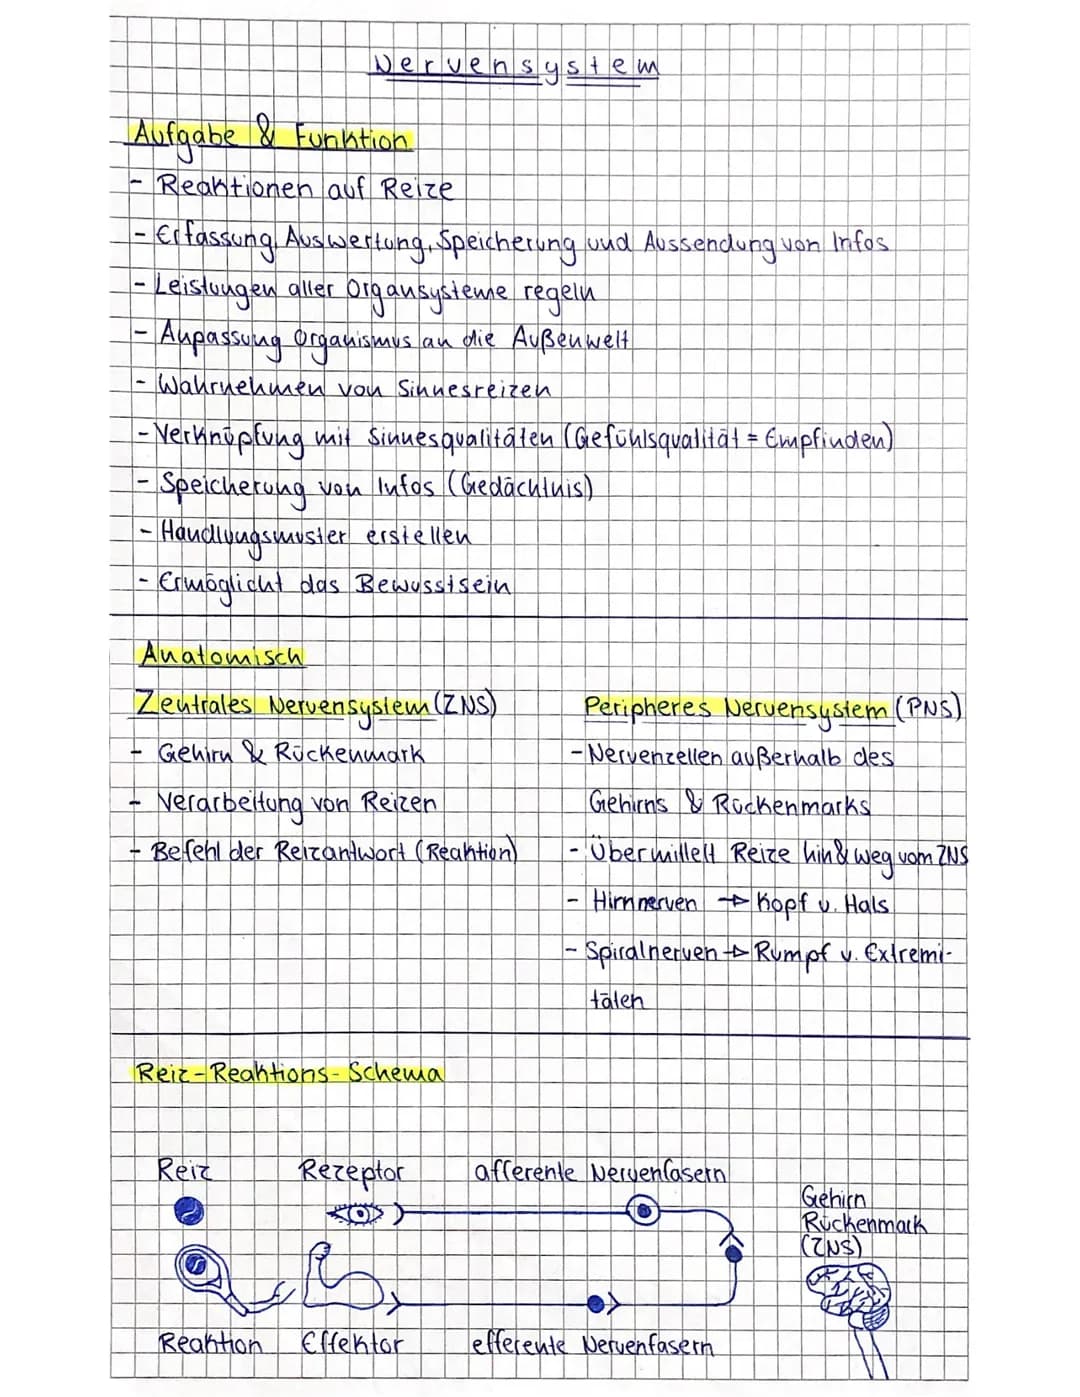 Nervensystem
Aufgabe & Funktion
- Reaktionen auf Reize
- Erfassung, Auswertung, Speicherung und Aussendung von Infos
- Leistungen aller Organsysteme regeln
- Anpassung Organismus an die Außenwelt
- Wahrnehmen von Sinnesreizen
- Verknüpfung mit Sinnesqualitäten (Gefühlsqualität = Empfinden)
- Speicherung von Infos (Gedächtnis)
- Handlungsmuster erstellen
- Ermöglicht das Bewusstsein
Anatomisch
Zentrales Nervensystem (ZNS)
- Gehirn & Rückenmark
- Verarbeitung von Reizen
- Befehl der Reizantwort (Reaktion)
Peripheres Nervensystem (PNS)
- Nervenzellen außerhalb des
Gehirns & Rückenmarks
- Übermittelt Reize hin & weg vom ZNS
- Hirnnerven → Kopf u. Hals
- Spiralnerven → Rumpf u. Extremi-
täten
Reiz-Reaktions-Schema
Reiz Rezeptor afferente Nervenfasern
Gehirn
Rückenmark
(ZNS)
Reaktion Effektor efferente Nervenfasern